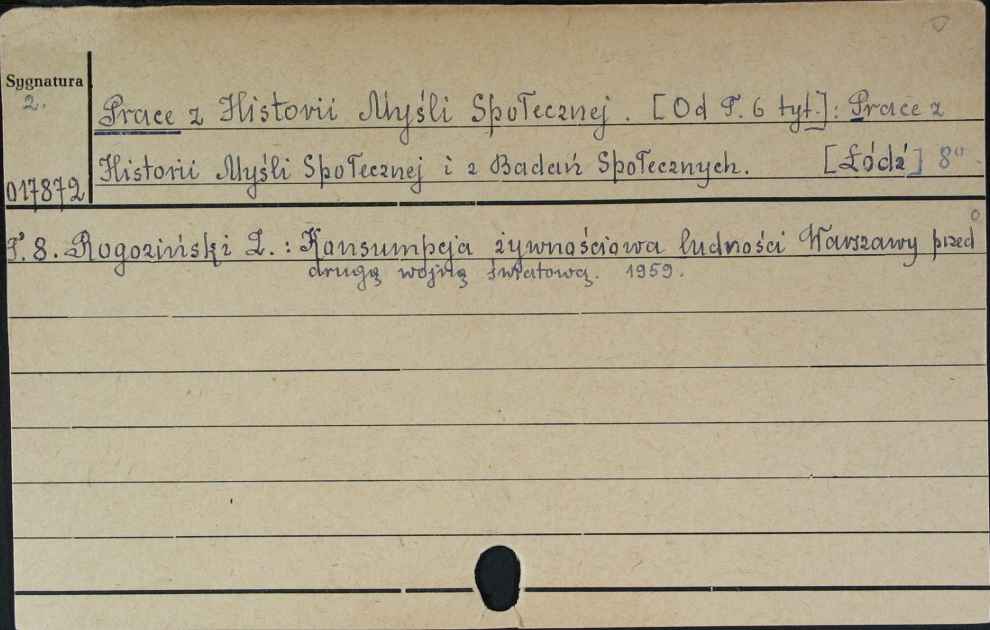 Sygnatura
2.
Prace z Historii Myśli Społecznej. [Od T. 6 tyt.]: Prace z
Historii Myśli Społecznej i z Badań Społecznych. [Łódź] 8°
017872
T. 8. Rogoziński Z.: Konsumpcja żywnościowa ludności Warszawy przed
drugą wojną światową. 1959.